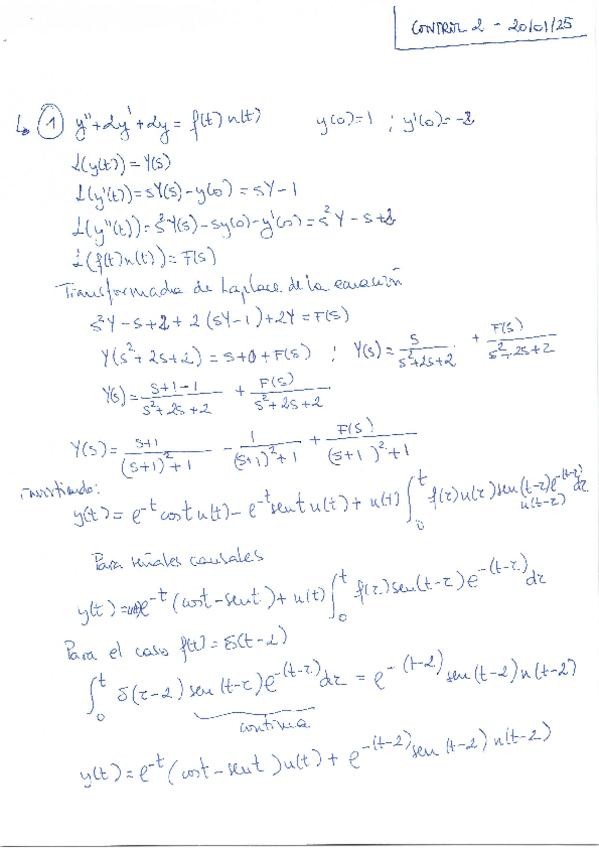 CONTROL 2 - 20/01/25
↳ ① y''+2y'+2y = f(t) u(t)   y(0)=1 ; y'(0)=-2
L(y(t)) = Y(s)
L(y'(t)) = sY(s) - y(0) = sY - 1
L(y''(t)) = s²Y(s) - sy(0) - y'(0) = s²Y - s + 2
L(f(t)u(t)) = F(s)
Transformada de Laplace de la ecuación
s²Y - s + 2 + 2(sY-1) + 2Y = F(s)
Y(s²+2s+2) = s+0+F(s) ; Y(s) = s/(s²+2s+2) + F(s)/(s²+2s+2)
Y(s) = (s+1-1)/(s²+2s+2) + F(s)/(s²+2s+2)
Y(s) = (s+1)/((s+1)²+1) - 1/((s+1)²+1) + F(s)/((s+1)²+1)
Invirtiendo:
y(t) = e^{-t} cost u(t) - e^{-t} sent u(t) + u(t) ∫₀ᵗ f(τ)u(τ) sen(t-τ) e^{-(t-τ)} u(t-τ) dτ
Para señales causales
y(t) = e^{-t}(cost - sent) + u(t) ∫₀ᵗ f(τ) sen(t-τ) e^{-(t-τ)} dτ
Para el caso f(t) = δ(t-2)
∫₀ᵗ δ(τ-2) sen(t-τ) e^{-(t-τ)} dτ = e^{-(t-2)} sen(t-2) u(t-2)
continua
y(t) = e^{-t}(cost - sent)u(t) + e^{-(t-2)} sen(t-2) u(t-2)